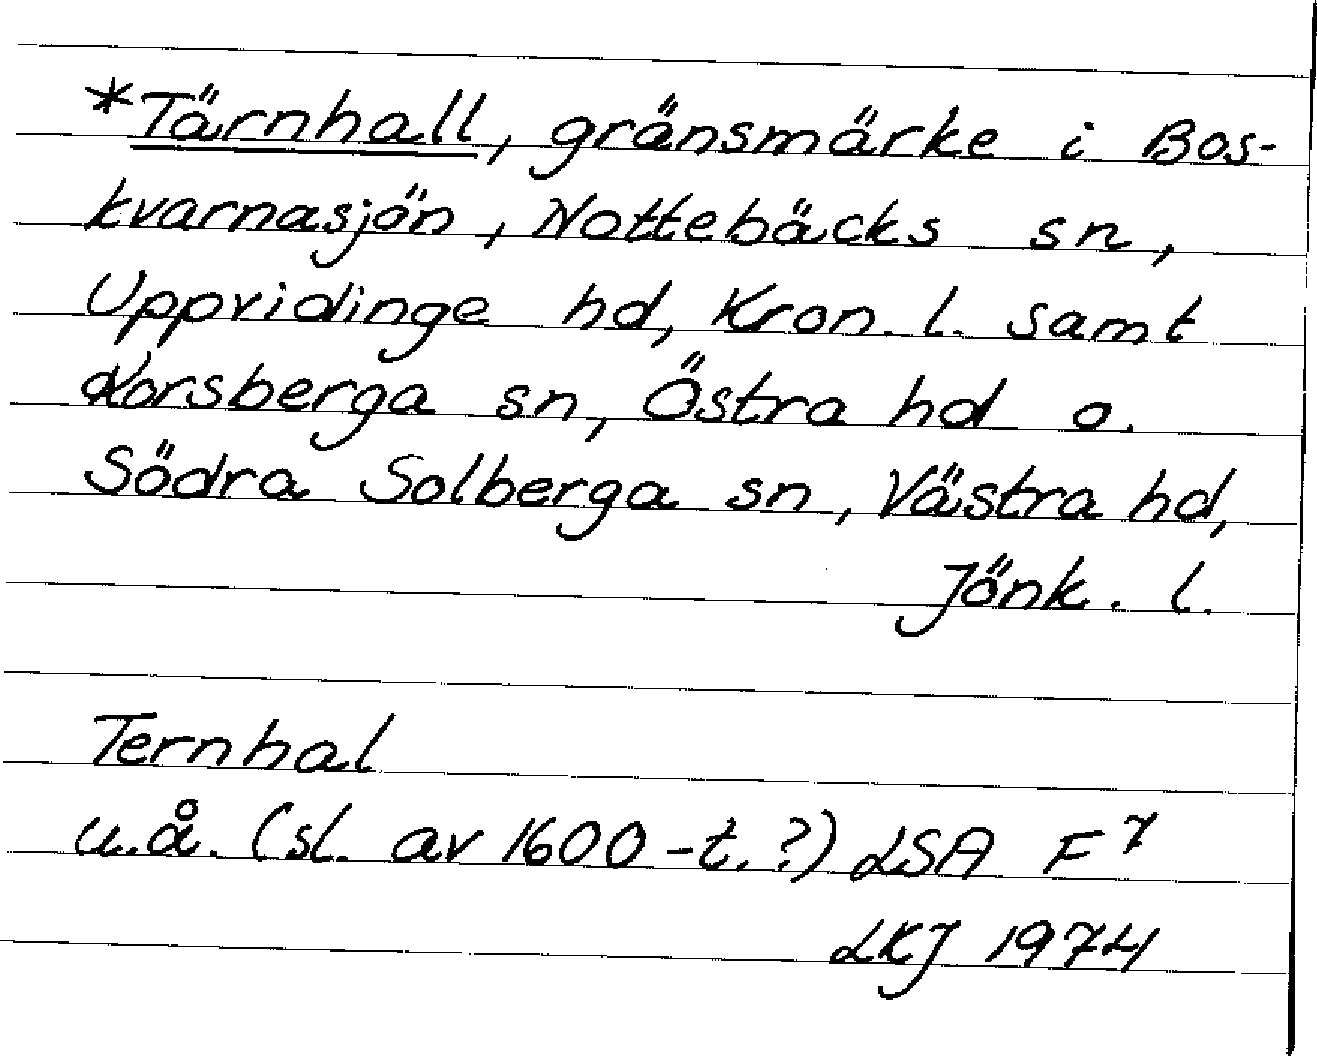 *Tärnhall, gränsmärke i Bos-
kvarnasjön, Nottebäcks sn,
Uppvidinge hd, Kron. l. samt
Korsberga sn, Östra hd o.
Södra Solberga sn, Västra hd,
Jönk. l.
Ternhal
u.å. (sl. av 1600-t.?) LSA F⁷
LKJ 1974